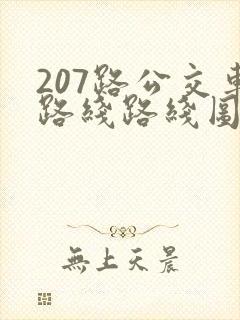 207路公交車
路綫路綫圖
無上天晨